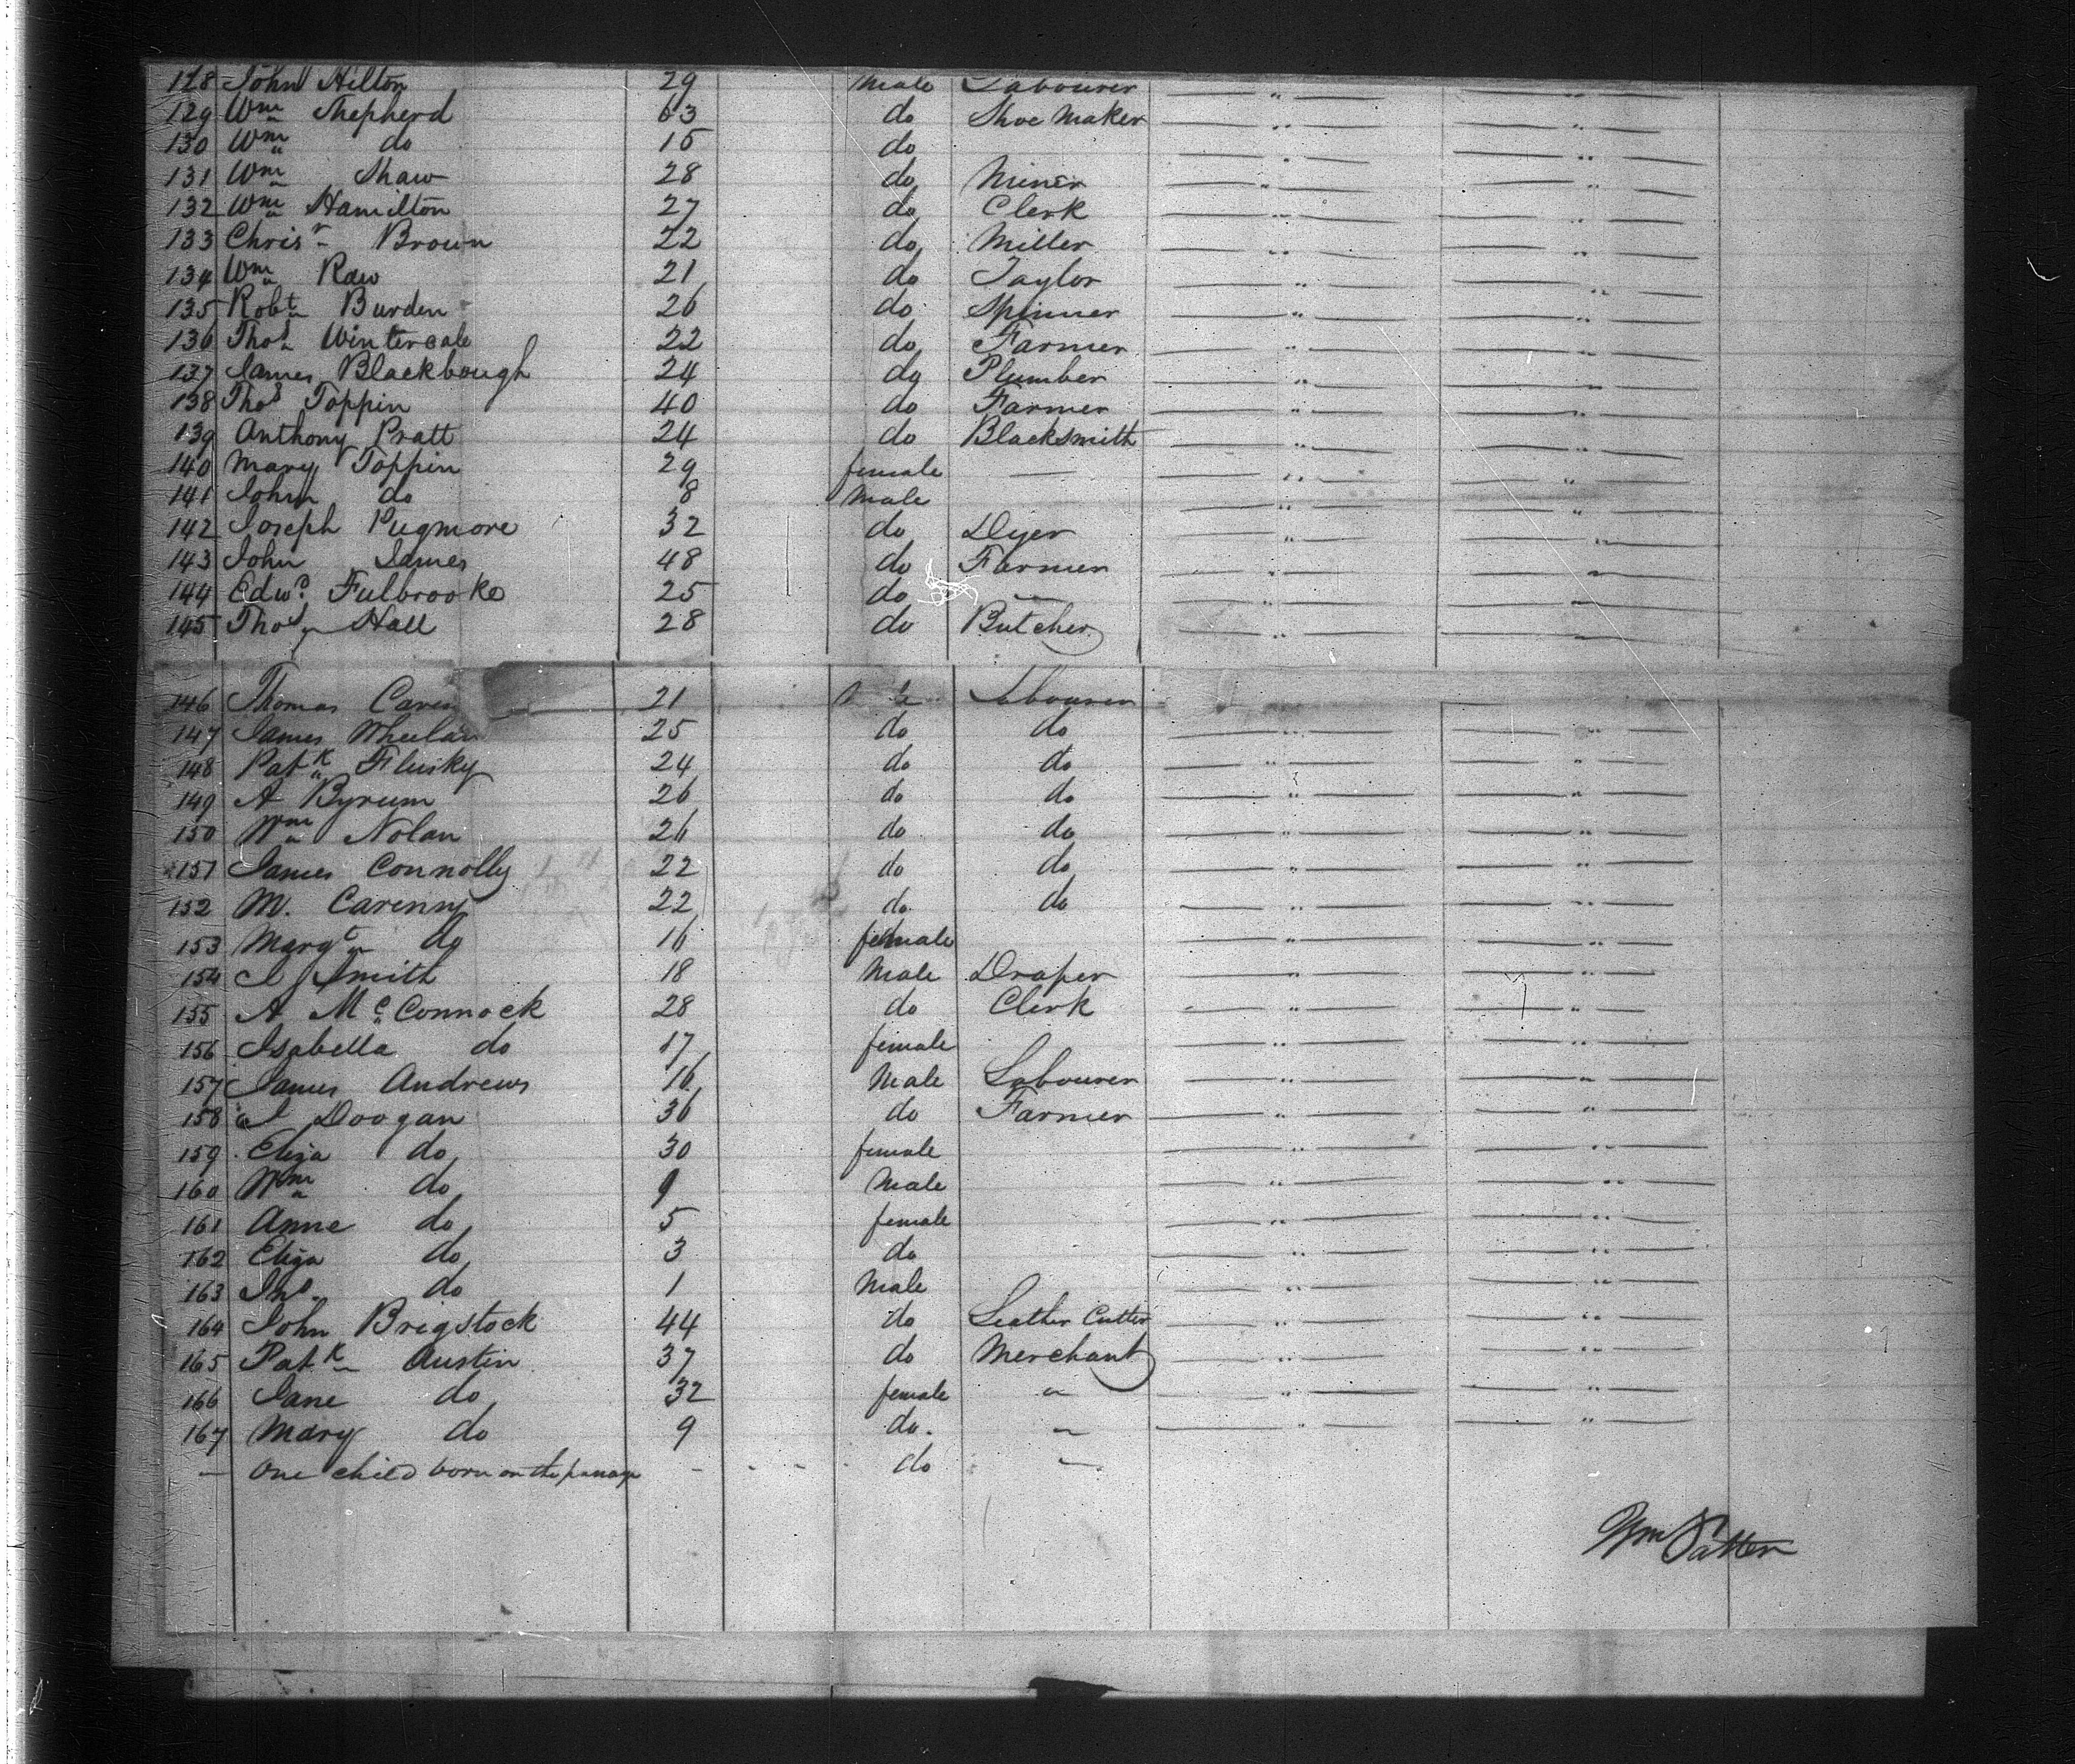 128 John Hilton 29 Male Labourer " "
129 Wm Shepherd 63 do Shoe Maker " "
130 Wm do 15 do " "
131 Wm Shaw 28 do Miner " "
132 Wm Hamilton 27 do Clerk " "
133 Chrisr Brown 22 do Miller " "
134 Wm Raw 21 do Taylor " "
135 Robt Burden 26 do Spinner " "
136 Thos 22 do Farmer " "
137 James Blackbough 24 do Plumber " "
138 Thos Toppin 40 do Farmer " "
139 Anthony Pratt 24 do Blacksmith " "
140 Mary Toppin 29 female — " "
141 John do 8 Male " "
142 Joseph Pugmore 32 do Dyer " "
143 John James 48 do Farmer " "
144 Edwd Fulbrooke 25 do — "
145 Thos Hall 28 do Butcher " "
146 Thomas 21 Labourer
147 James Whelan 25 do do " "
148 Patk Flusky 24 do do " "
149 A Byrum 26 do do " "
150 Wm Nolan 26 do do " "
151 James Connolly 22 do do " "
152 M. Carenny 22 do do " "
153 Margt do 16 female " "
154 J Smith 18 Male Draper " "
155 A McConnock 28 do Clerk " "
156 Isabella do 17 female " "
157 James Andrews 16 Male Labourer " "
158 J Doogan 36 do Farmer " "
159 Eliza do 30 female " "
160 Wm do 9 Male " "
161 Anne do 5 female " "
162 Eliza do 3 do " "
163 Jno. do 1 Male " "
164 John Brigstock 44 do Leather Cutter " "
165 Patk Austin 37 do Merchant " "
166 Jane do 32 female " " "
167 Mary do 9 do. " " "
— One child born on the passage - - - - do —
Wm Patten